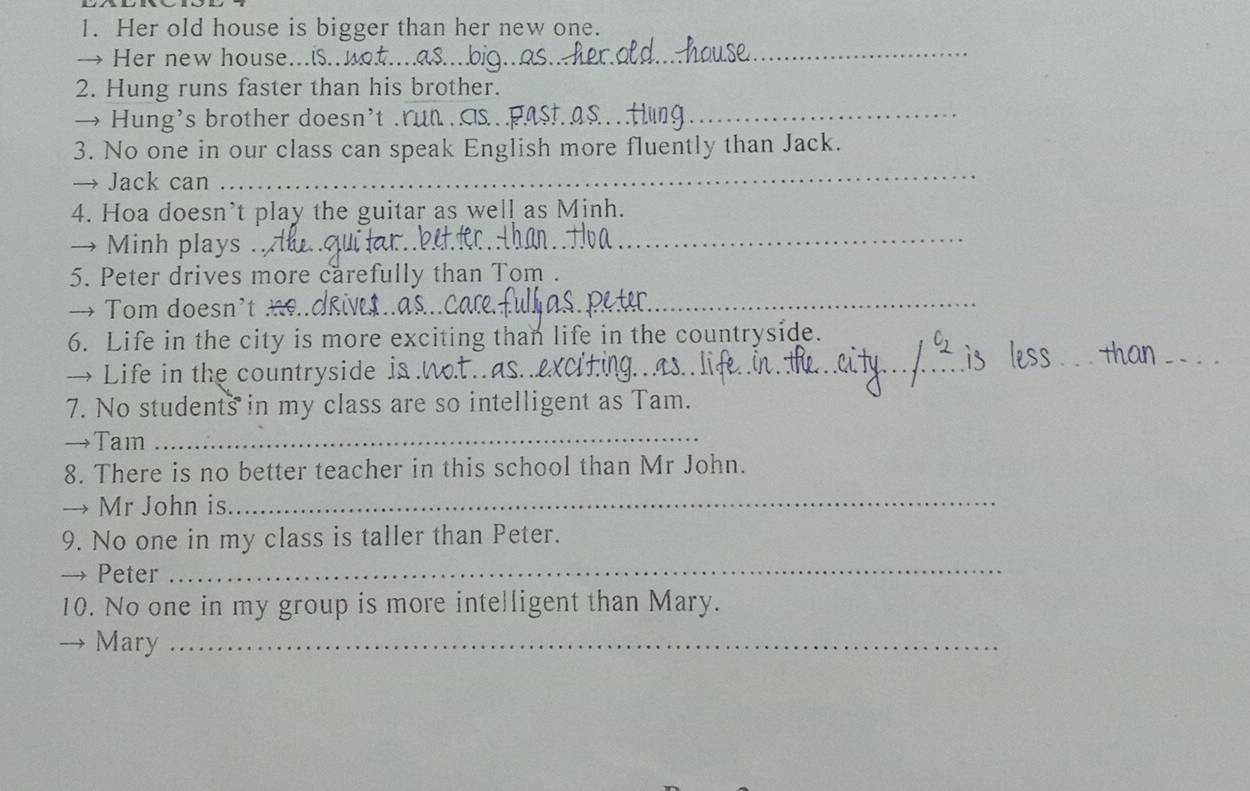 EXERCISE 4
1. Her old house is bigger than her new one.
→ Her new house...is..not....as...big..as..her.old....house....................
2. Hung runs faster than his brother.
→ Hung's brother doesn't .run..as...fast.as....Hung....................
3. No one in our class can speak English more fluently than Jack.
→ Jack can ....................
4. Hoa doesn't play the guitar as well as Minh.
→ Minh plays ..the..guitar..better..than..Hoa....................
5. Peter drives more carefully than Tom .
→ Tom doesn't ..drives..as...carefully as.peter....................
6. Life in the city is more exciting than life in the countryside.
→ Life in the countryside is.not..as..exciting...as..life..in.the..city.../....is less ... than ....
7. No students in my class are so intelligent as Tam.
→Tam ....................
8. There is no better teacher in this school than Mr John.
→ Mr John is....................
9. No one in my class is taller than Peter.
→ Peter ....................
10. No one in my group is more intelligent than Mary.
→ Mary ....................